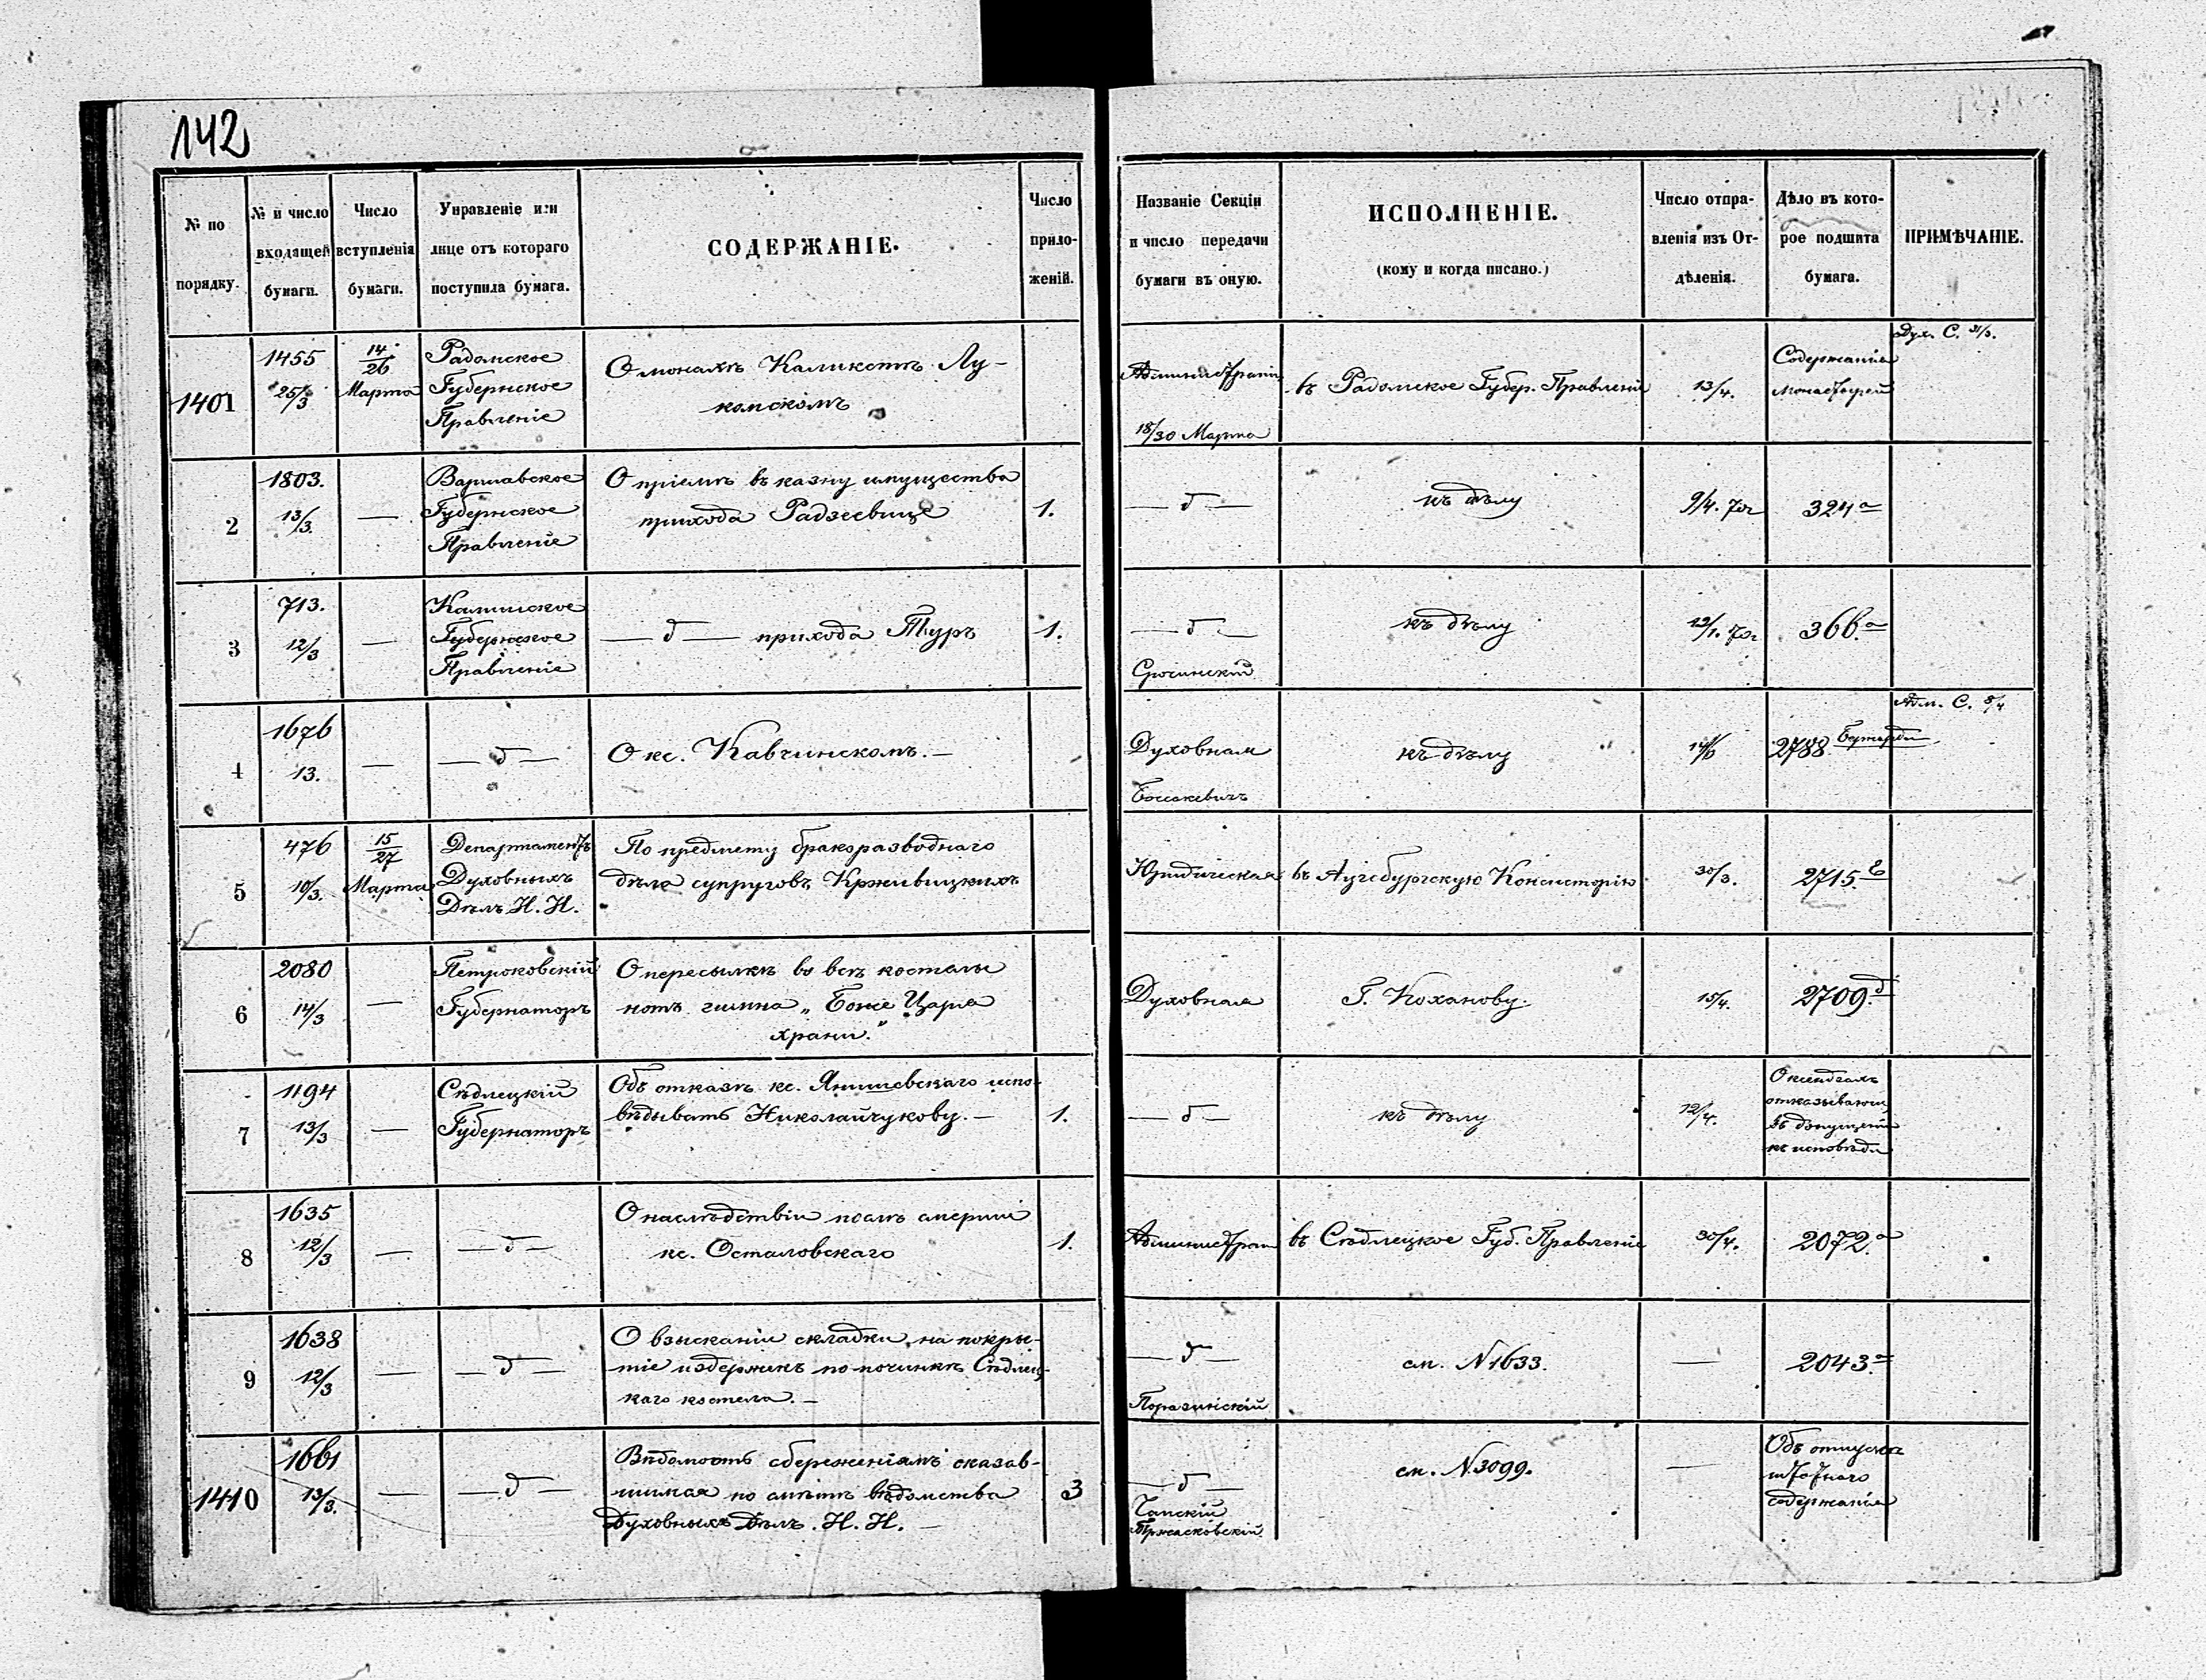 142
№ по порядку.
№ и число входящей бумаги.
Число вступленія бумаги.
Управленіе или лице отъ котораго поступила бумага.
СОДЕРЖАНІЕ.
Число приложеній.
Названіе Секціи и число передачи бумаги въ оную.
ИСПОЛНЕНІЕ.
(кому и когда писано.)
Число отправленія изъ Отдѣленія.
Дѣло въ которое подшита бумага.
ПРИМѢЧАНІЕ.
1401
1455
25/3
14/26
Марта
Радомское
Губернское
Правленіе
О монахѣ Каликстѣ Лу-
комскомъ
18/30 Марта
въ Радомское Губер. Правленіе
13/4.
Содержаніе
монастырей
Дух. С. 31/3.
2
1803.
13/3.
—
Варшавское
Губернское
Правленіе
О пріемѣ въ казну имущества
прихода Радзеевице
1.
— д —
къ дѣлу
9/4. 70г
324а
3
713.
12/3
—
Калишское
Губернское
Правленіе
— д — прихода Туръ
1.
— д —
къ дѣлу
70г
366.а
4
1676
13.
—
— д —
О кс. Кавчинскомъ. —
Духовная
къ дѣлу
2788
Адм. С. 8/4
5
476
10/3.
15/27
Марта
Департаментъ
Духовныхъ
Дѣлъ И. И.
По предмету бракоразводнаго
дѣла супруговъ Крживицкихъ
Юридическая
въ Аугсбургскую Консисторію
30/3.
2715.
6
2080
14/3
—
Петроковскій
Губернаторъ
О пересылкѣ во всѣ костелы
нотъ гимна „Боже Царя
храни."
Духовная
Г. Коханову.
15/4.
2709.д
7
1194
13/3
—
Сѣдлецкій
Губернаторъ
Объ отказѣ кс. Янишевскаго испо-
вѣдывать Николайчукову. —
1.
— д —
къ дѣлу
12/4.
О ксендзахъ
къ исповѣди
8
1635
12/3
—
— д —
О наслѣдствіи послѣ смерти
кс. Осталовскаго
1.
въ Сѣдлецкое Губ. Правленіе
30/4.
2072.а
9
1638
12/3
—
— д —
О взысканіи складки на покры-
тіе издержекъ по починкѣ Сѣдлец-
каго костела. —
— д —
см. N 1633.
—
2043.а
1410
1661
13/3.
—
— д —
Вѣдомость сбереженіямъ оказав-
шимся по смѣтѣ вѣдомства
Духовныхъ Дѣлъ. И. И. —
3
— д —
см. N 3099.
—
Объ отпускѣ
штатнаго
содержанія